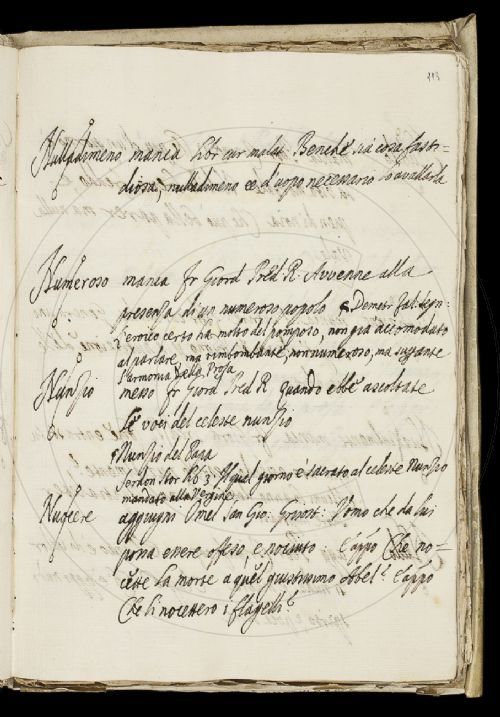 113
Nulladimeno manca libr cur malat. Benchè sia cosa fasti-
diosa, nulladimeno ce d'uopo necessario
Numeroso manca fr Giord Pred R. Avvenne alla
presenza di un numeroso popolo § Demetr
L'eroico certo ha molto del pomposo, non già accomodato
al parlare, ma rimbombante, non numeroso, ma
l'armonia della Prosa
Nunzio messo fr Giord Pred R quando ebbe ascoltate
le voci del celeste nunzio
§ Nunzio del Papa
Serdon Stor R6 3 Quel giorno è sacrato al celeste Nunzio
mandato alla Vergine
Nuocere aggiugni Omel San Gio: Grisost: Uomo che da lui
possa essere ofeso, e nociuto E appo Che no-
cette la morte a quel giustissimo Abel? E appo
Che li nocettero i flagelli?